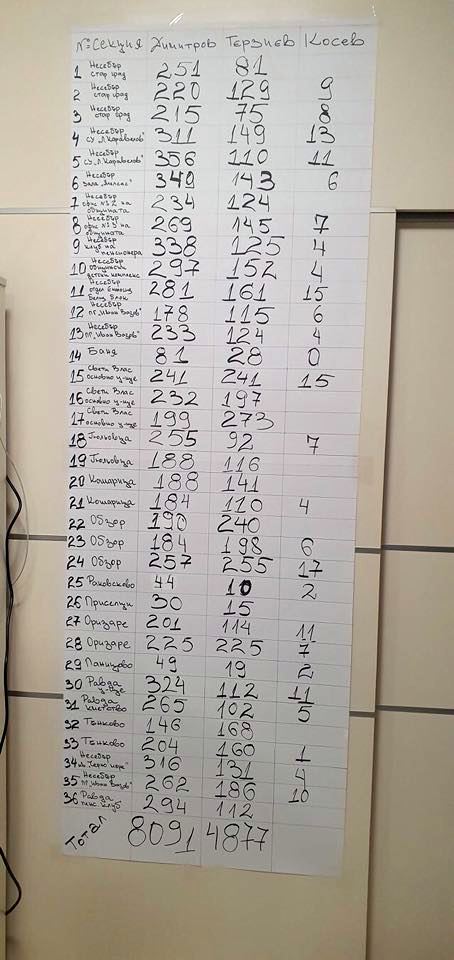 № Секция Димитров Терзиев Косев
1 Несебър стар град 251 81
2 Несебър стар град 220 129 9
3 Несебър стар град 215 75 8
4 Несебър СУ "Л. Каравелов" 311 149 13
5 Несебър СУ "Л. Каравелов" 356 110 11
6 Несебър Зала 340 143 6
7 Несебър офис №2 на общината 234 124
8 Несебър офис №3 на общината 269 145 7
9 Несебър клуб на пенсионера 338 125 4
10 Несебър общински детски комплекс 297 152 4
11 Несебър отдел 281 161 15
12 Несебър ПГ "Иван Вазов" 178 115 6
13 Несебър ПГ "Иван Вазов" 233 124 4
14 Баня 81 28 0
15 Свети Влас основно у-ще 241 241 15
16 Свети Влас основно у-ще 232 197
17 Свети Влас основно у-ще 199 273
18 Гюльовца 255 92 7
19 Гюльовца 188 116
20 Кошарица 188 141
21 Кошарица 184 110 4
22 Обзор 190 240
23 Обзор 184 198 6
24 Обзор 257 255 17
25 Раковсково 44 10 2
26 Приселци 30 15
27 Оризаре 201 114 11
28 Оризаре 225 225 7
29 Паницово 49 19 2
30 Равда у-ще 324 112 11
31 Равда кметство 265 102 5
32 Тънково 146 168
33 Тънково 204 160 1
34 Несебър "Черно море" 316 131 4
35 Несебър ПГ "Иван Вазов" 262 186 10
36 Равда пенс. клуб 294 112
Тотал 8091 4877